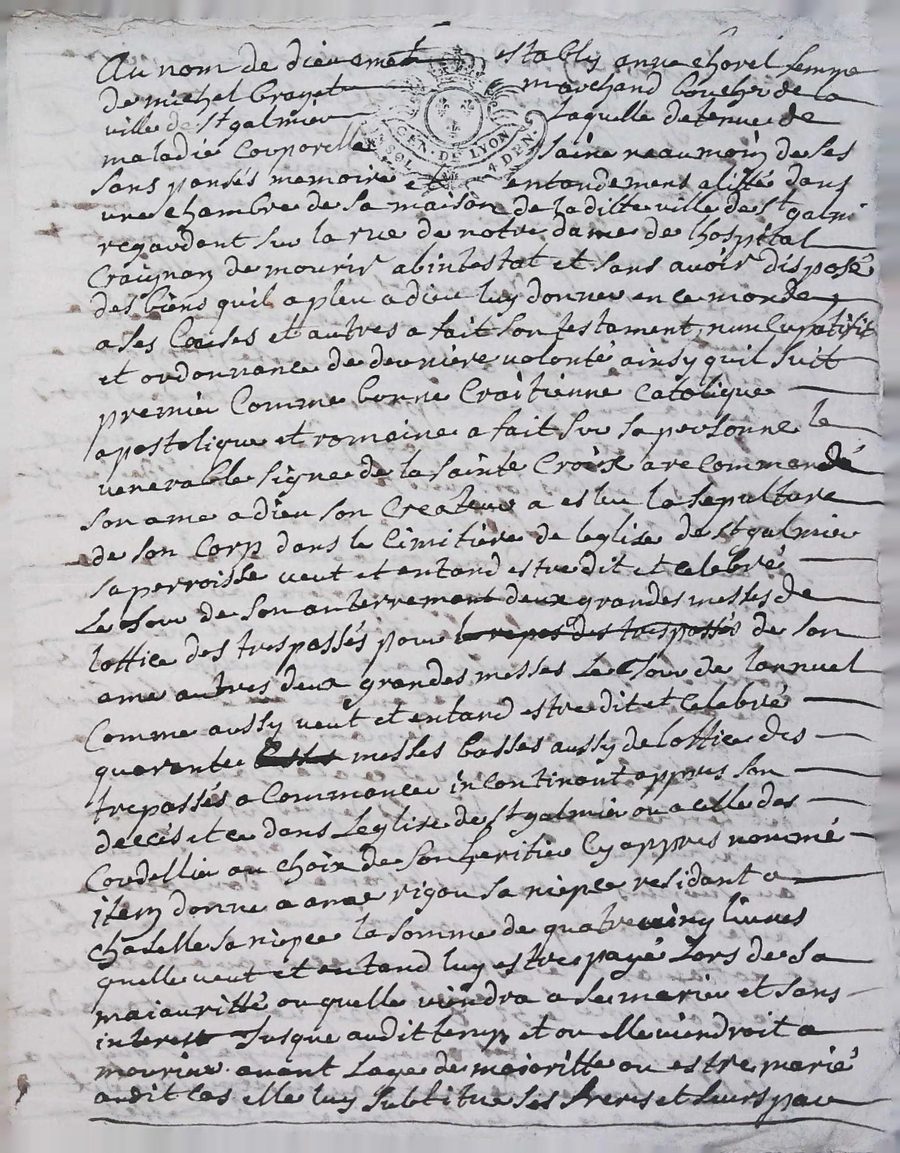 Au nom de dieu amen establis anne chorel femme
de michel Brayet marchand boucher de la
ville de St galmier Laquelle detenue de
maladie Corporelle saine neaumoin de ses
sans pansés memoire et entandement alitté dans
une chambre de sa maison de laditte ville de St galmi
regardant sur la rue de notre dame de lhospital
Craignan de mourir abintestat et sans avoir disposé
des biens quil a pleu a dieu luy donner en ce monde
a ses Causes et autres a fait son testament, nuncupatifit
et ordonnance de derniere volonté ainsy quil suit
premier Comme bonne Craitienne Catolique
apostolique et romaine a fait sur sa personne le
venerable signe de la sainte Croix a recommandé
son ame a dieu son Createur a eslu la sepulture
de son Corp dans le Cimitière de leglise de St galmier
sa perroisse veut et entand estre dit et celebré
Le Jour de son anterremant deux grandes messes de
loffice des trespassés pour le repos des trespassés de son
ame autres deux grandes messes Le Jour de lannuel
Comme aussy veut et entand estre dit et Celebré
quarente messes basses aussy de loffice des
trepassés a Commancer incontinant appres son
decès et ce dans Leglise de St galmier ou a celle des
Cordellier au choix de son heritier Cy appres nommé
item donne a anne rigou sa niepce residant a
chaselle sa niepce la somme de quatrevingt livres
quelle veut et entand luy estre payé Lors de sa
majauritté ou quelle viendra a se marier et sans
interest Jusque audit temp et ou elle viendroit a
mourire avant Lage de majoritte ou estre marié
audit Cas elle luy subtitue ses freres et seurs par